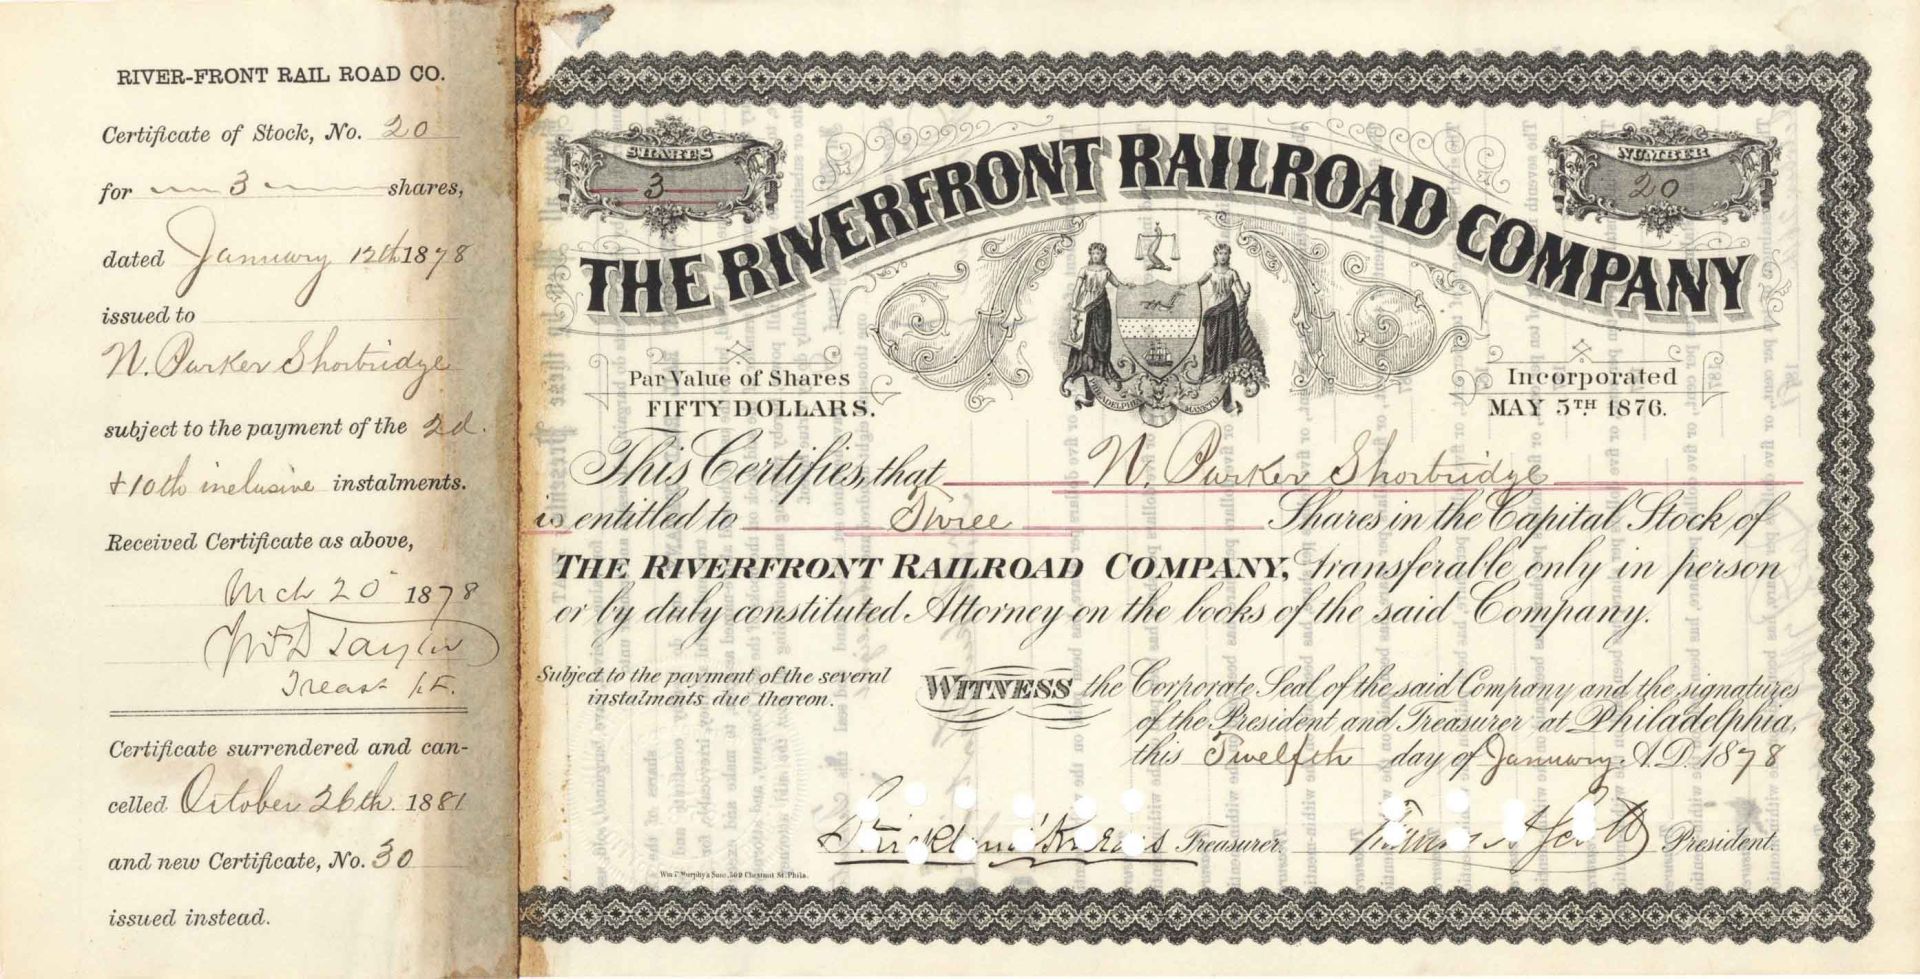 RIVER-FRONT RAIL ROAD CO.
Certificate of Stock, No. 20
for 3 shares,
dated January 12th 1878
issued to
N. Parker Shortridge
subject to the payment of the 2d.
+ 10th inclusive instalments.
Received Certificate as above,
Mch 20 1878
Taylor
Treas
Certificate surrendered and can-
celled October 26th. 1881
and new Certificate, No. 30
issued instead.
SHARES
3
NUMBER
20
THE RIVERFRONT RAILROAD COMPANY
PHILADELPHIA MANETO
Par Value of Shares
FIFTY DOLLARS.
Incorporated
MAY 5TH 1876.
This Certifies, that N. Parker Shortridge
is entitled to Three Shares in the Capital Stock of
THE RIVERFRONT RAILROAD COMPANY, transferable only in person
or by duly constituted Attorney on the books of the said Company.
Subject to the payment of the several
instalments due thereon.
WITNESS the Corporate Seal of the said Company and the signatures
of the President and Treasurer at Philadelphia,
this Twelfth day of January A.D. 1878
Treasurer. Scott President.
Wm F Murphy's Sons, 509 Chestnut St. Phila.